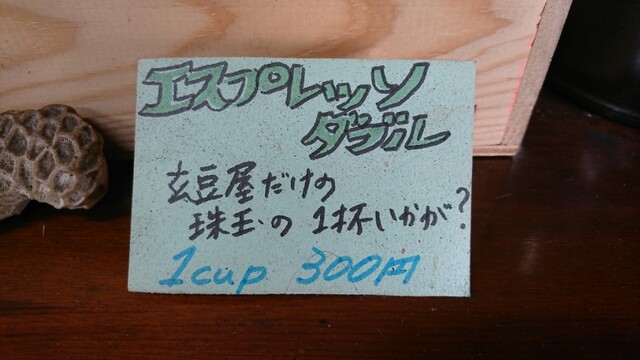 エスプレッソ
ダブル
玄豆屋だけの
珠玉の1杯いかが?
1cup 300円